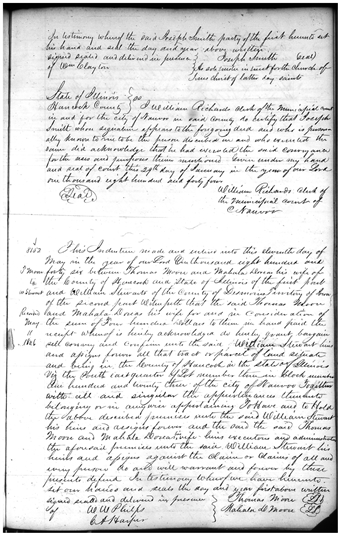 In testimony whereof the said Joseph Smith party of the first hereunto set
his hand and seal the day and year above written
signed sealed and delivered in presence } Joseph Smith seal
of Wm Clayton
Jesus Christ of latter day saints
State of Illinois } ss
Hancock County } I William Richards Clerk of the Municipal court
in and for the city of Nauvoo in said county do certify that Joseph
Smith whose signature appears to the foregoing deed and who is person-
ally known to me to be the person described in and who executed the
same did acknowledge that he had executed the said conveyance
for the uses and purposes therein mentioned Given under my hand
and seal of court this 29th day of January in the year of our Lord
one thousand eight hundred and forty four
Seal
William Richards Clerk of
the Municipal court of
Nauvoo
This Indenture made and entered into this eleventh day of
May in the year of our Lord One thousand eight hundred and
forty six between Thomas Moore and Mahala Moore his wife of
the County of Hancock and State of Illinois of the first part
and William Stewart of the County of
of the second part Witnesseth that the said Thomas Moore
and Mahala his wife for and in consideration of
the sum of Four hundred dollars to them in hand paid the
receipt whereof is hereby acknowledged do hereby grant bargain
sell convey and confirm unto the said William Stewart his
heirs and assigns forever all that tract or parcel of land situate
and being in the County of Hancock in the State of Illinois
Viz the South of Lot number in Block number
one hundred and twenty three of the city of Nauvoo Together
with all and singular the appurtenances thereunto
belonging or in anywise appertaining To Have and to Hold
the above described premises unto the said William Stewart
his heirs and assigns forever and the said Thomas
Moore and Mahala Moore his wife their executors and administrators
the aforesaid premises unto the said William Stewart his
heirs and assigns against the claim or claims of all and
every person do and will warrant and forever by these
presents defend In testimony whereof we have hereunto
set our hands and seals the day and year first above written
signed sealed and delivered in presence } Thomas Moore
of W W Phelps } Mahala Moore